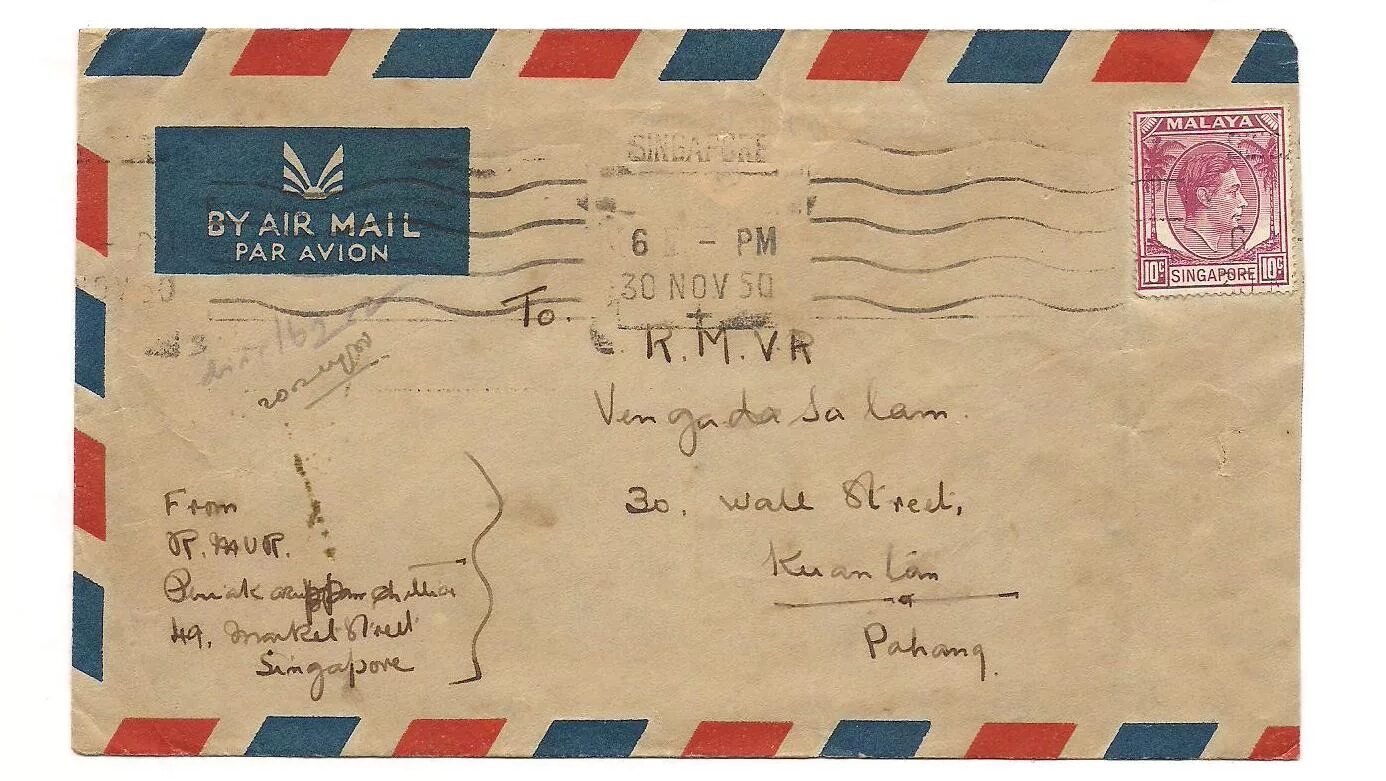 MALAYA
SINGAPORE
BY AIR MAIL
PAR AVION
6 - PM
30 NOV 50
10c SINGAPORE 10c
NOV 50
To.
R.M.V R
Vengadasalam.
30, Wall Street,
Kuantan
Pahang.
From
49, Market Street
Singapore